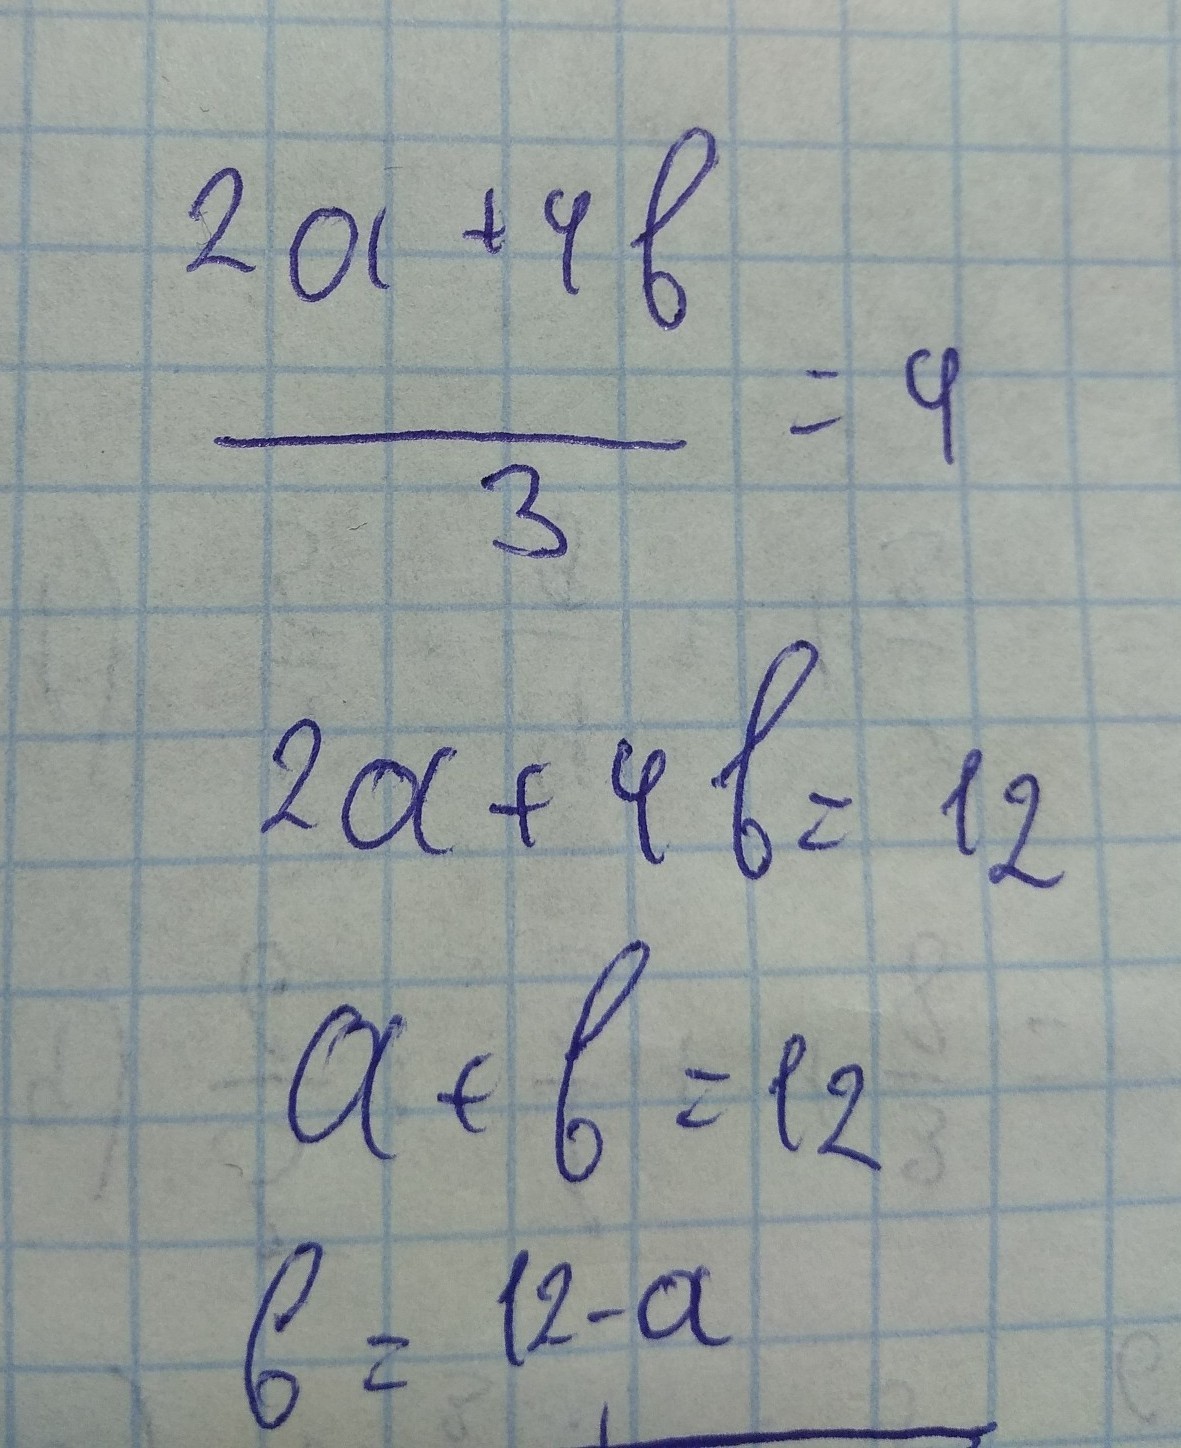 2a + 4b
= 4
3
2a + 4b = 12
a + b = 12
b = 12 - a